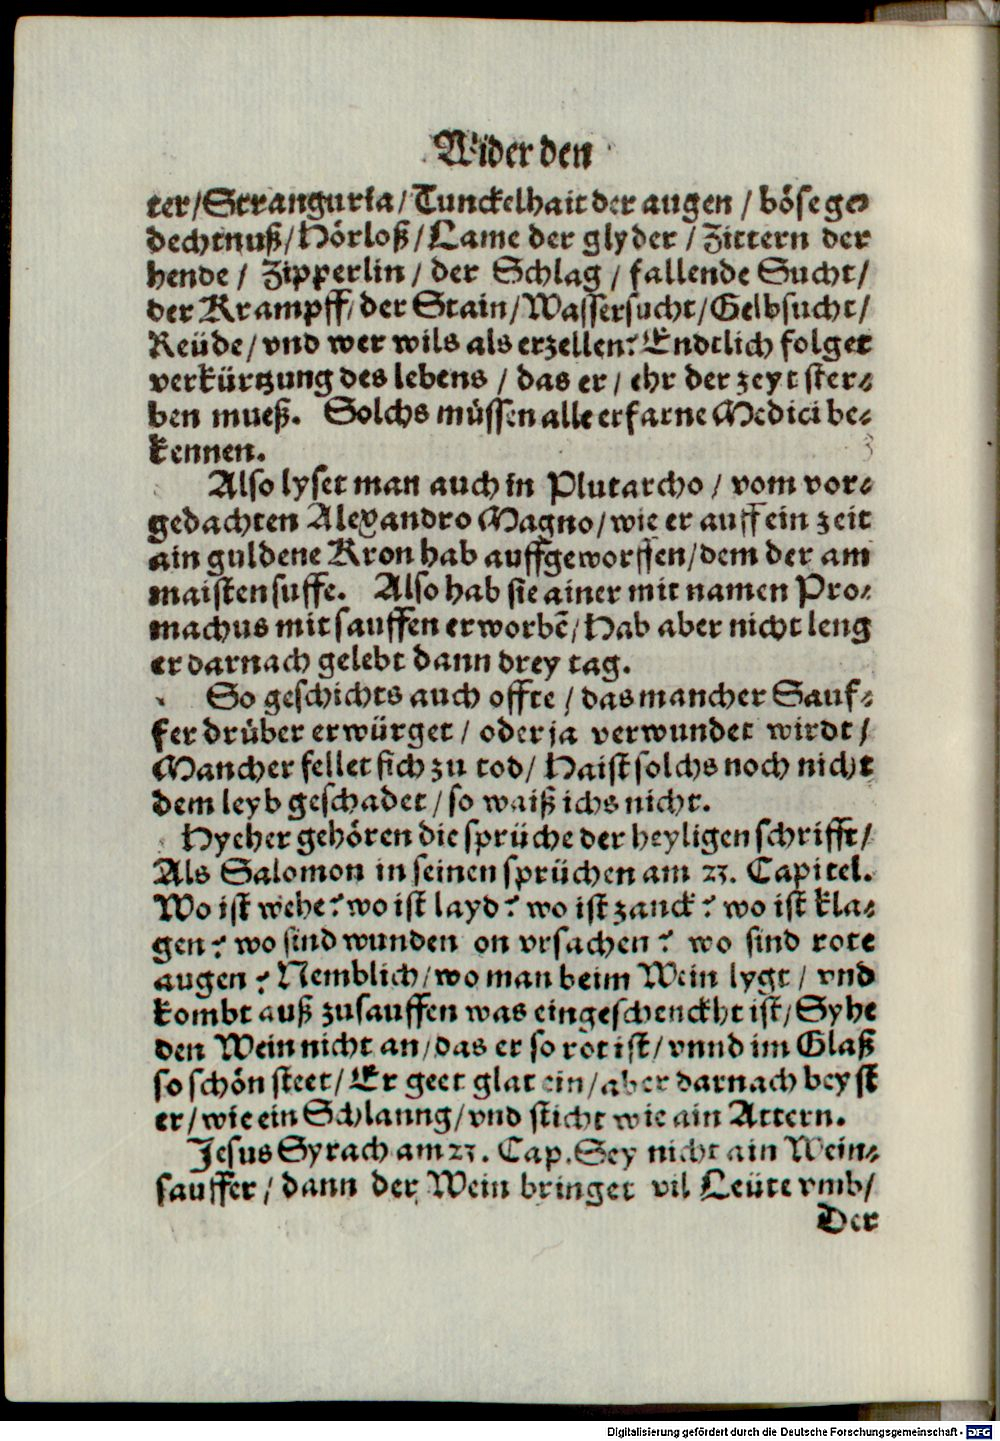 Wider den
ter/Stranguria/Tunckelhait der augen/böse ge⸗
dechtnuß/Hörloß/Lame der glyder/Zittern der
hende/Zipperlin/der Schlag/fallende Sucht/
der Krampff/der Stain/Wassersucht/Gelbsucht/
Reüde/vnd wer wils als erzellen? Endtlich folget
verkürtzung des lebens/das er/ehr der zeyt ster⸗
ben mueß. Solchs müssen alle erfarne Medici be⸗
kennen.
Also lyset man auch in Plutarcho/vom vor⸗
gedachten Alexandro Magno/wie er auff ein zeit
ain guldene Kron hab auffgeworffen/dem der am
maisten suffe. Also hab sie ainer mit namen Pro⸗
machus mit sauffen erworbē/Hab aber nicht leng
er darnach gelebt dann drey tag.
So geschichts auch offte/das mancher Sauf⸗
fer drüber erwürget/oder ja verwundet wirdt/
Mancher fellet sich zu tod/Haist solchs noch nicht
dem leyb geschadet/so waiß ichs nicht.
Hyeher gehören die sprüche der heyligen schrifft/
Als Salomon in seinen sprüchen am 23. Capitel.
Wo ist wehe? wo ist layd? wo ist zanck? wo ist kla⸗
gen? wo sind wunden on vrsachen? wo sind rote
augen? Nemblich/wo man beim Wein lygt/vnd
kombt auß zusauffen was eingeschenckht ist/Syhe
den Wein nicht an/das er so rot ist/vnnd im Glaß
so schön steet/Er geet glat ein/aber darnach beyst
er/wie ein Schlanng/vnd sticht wie ain Attern.
Jesus Syrach am 23. Cap. Sey nicht ain Wein⸗
sauffer/dann der Wein bringet vil Leüte vmb/
Der
Digitalisierung gefördert durch die Deutsche Forschungsgemeinschaft - DFG